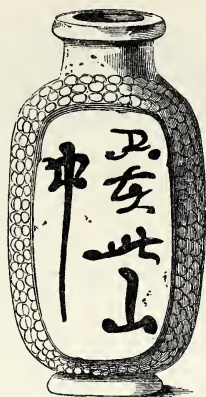 只在此山
中